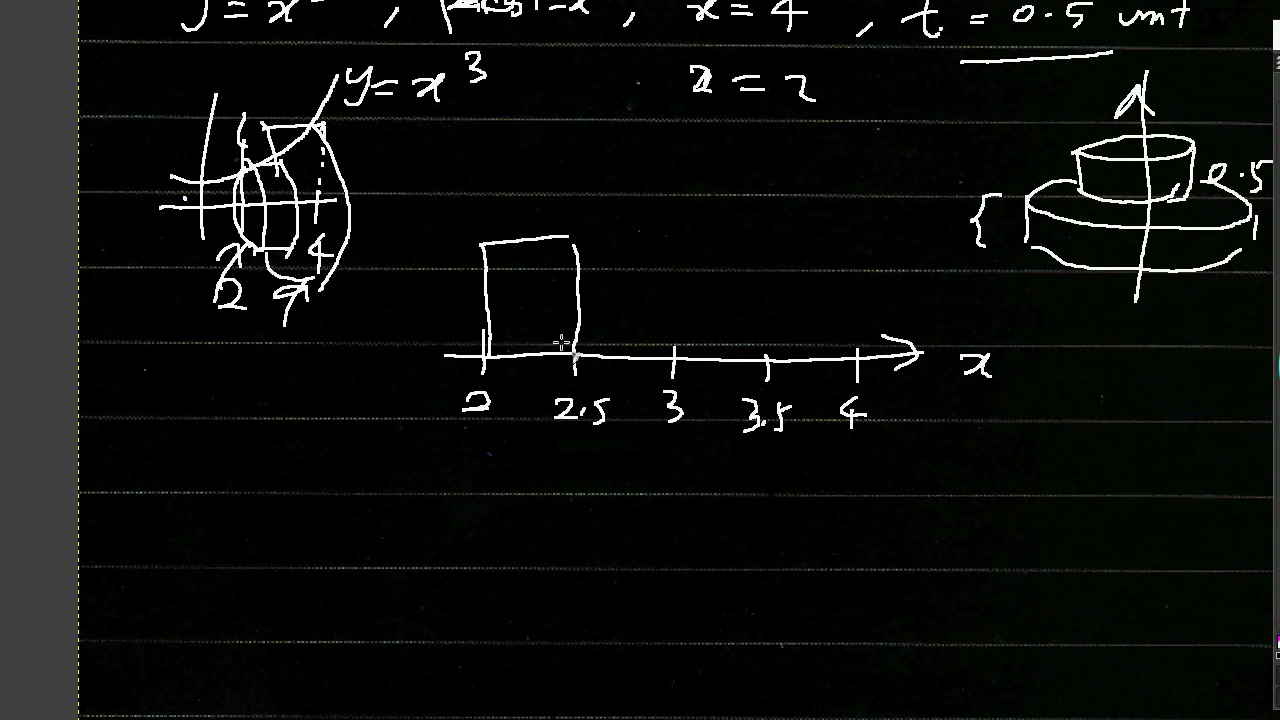 y = x , x = 4 , t = 0.5 unit
y = x³ x = 2
0.5
2 4
2 x
x
2 2.5 3 3.5 4